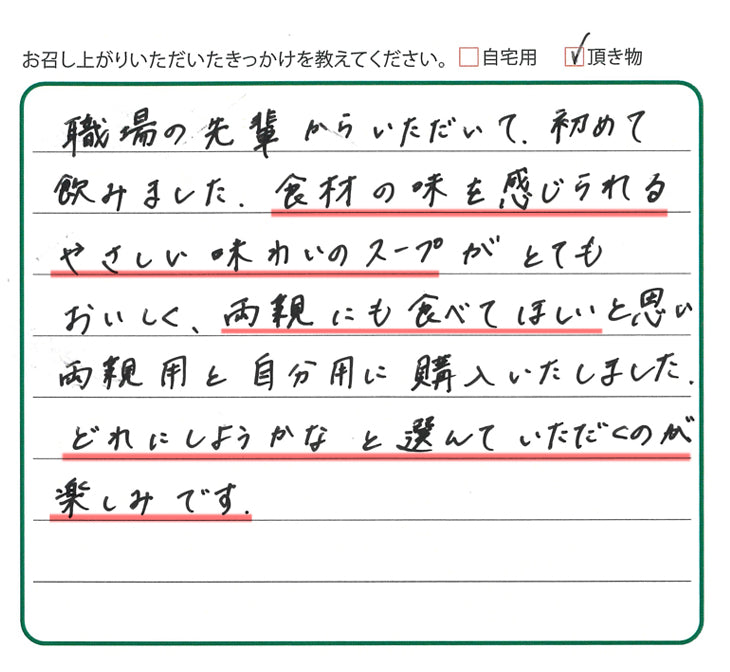 お召し上がりいただいたきっかけを教えてください。 □自宅用 ☑頂き物
職場の先輩からいただいて、初めて
飲みました。食材の味を感じられる
やさしい味わいのスープがとても
おいしく、両親にも食べてほしいと思い
両親用と自分用に購入いたしました。
どれにしようかなと選んていただくのが
楽しみです。